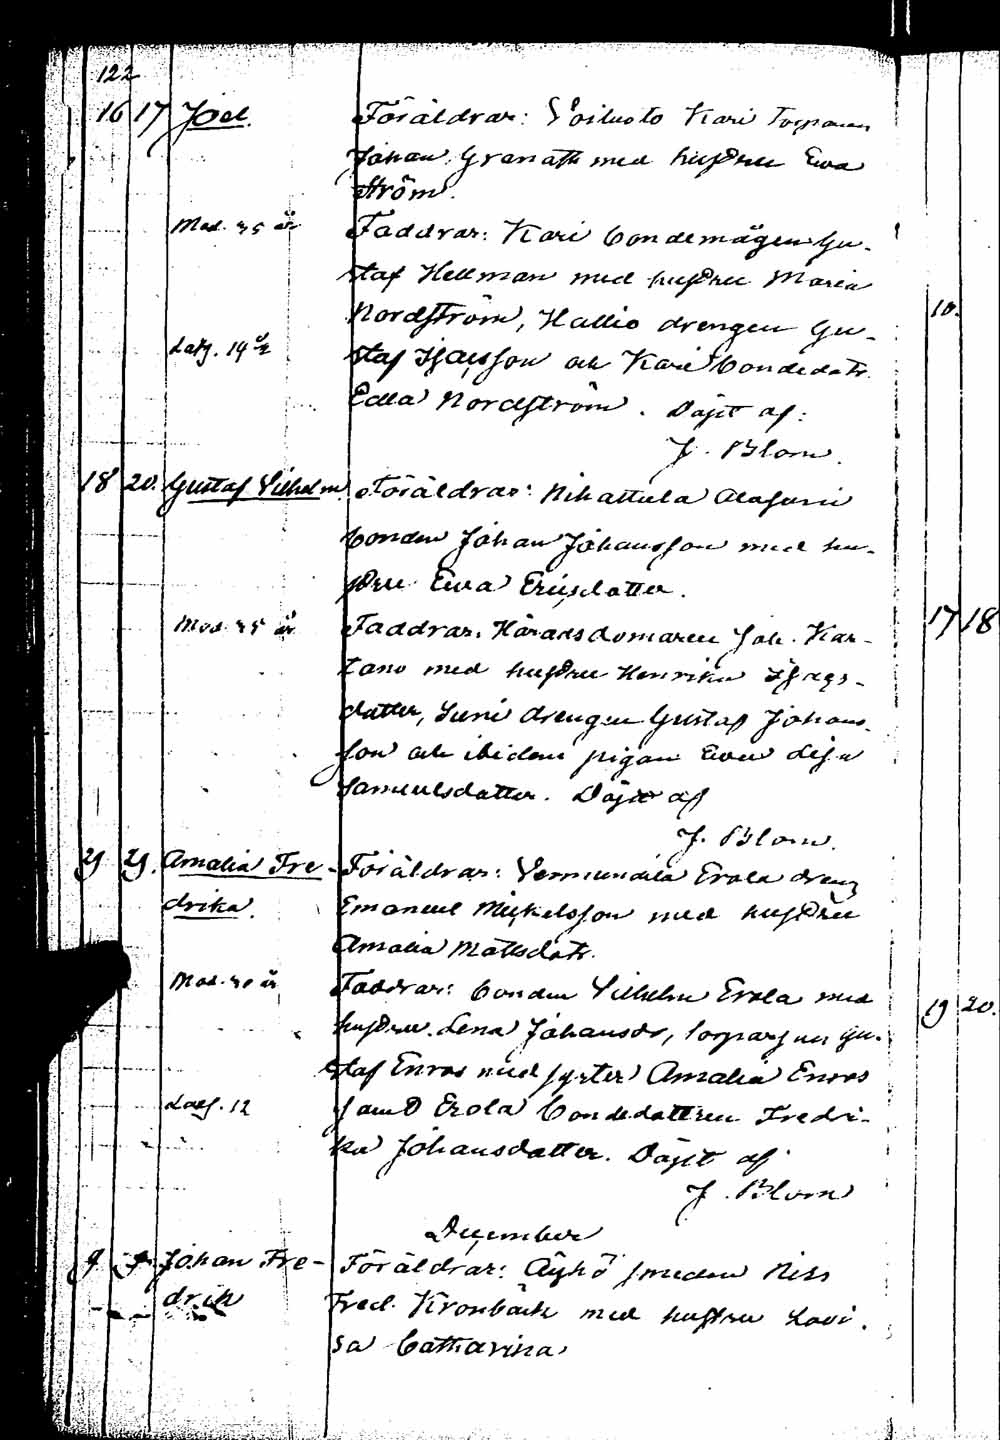 122
16 17 Joel. Föräldrar: Voiluoto Kari torparen
Johan Granath med hustru Ewa
Ström.
Mod. 35 år Faddrar: Kari bondemågen Gu-
staf Hellman med hustru Maria
10.
Nordström, Kallio drengen Gu-
staf Isacsson och Kari bondedotr.
Edla Nordström. Döpt af:
J. Blom.
18 20. Gustaf Vilhelm. Föräldrar: Nihattula Alasuni
bonden Johan Johansson med hu-
stru Ewa Ericsdotter.
17 18
Mod. 35 år Faddrar: Häradsdomaren Joh. Kar-
tano med hustru Henrika Isacs-
dotter, Suni drengen Gustaf Johans-
son och ibidem pigan Ewa Lisa
Samuelsdotter. Döpt af
J. Blom.
29 29. Amalia Fre- Föräldrar: Vermundila Erola dreng
drika. Emanuel Mickelsson med hustru
Amalia Mattsdotr.
Mod. 30 år Faddrar: bonden Vilhelm Erola med
19 20.
hustru Lena Johansdr, torparson Gu-
staf Enros med syster Amalia Enros
Laef. 12 samt Erola bondedottren Fredri-
ka Johansdotter. Döpt af
J. Blom
December
9 9 Johan Fre- Föräldrar: Äyhö smeden Nils
drik Fred. Kronbäck med hustru Lovi-
sa Catharina